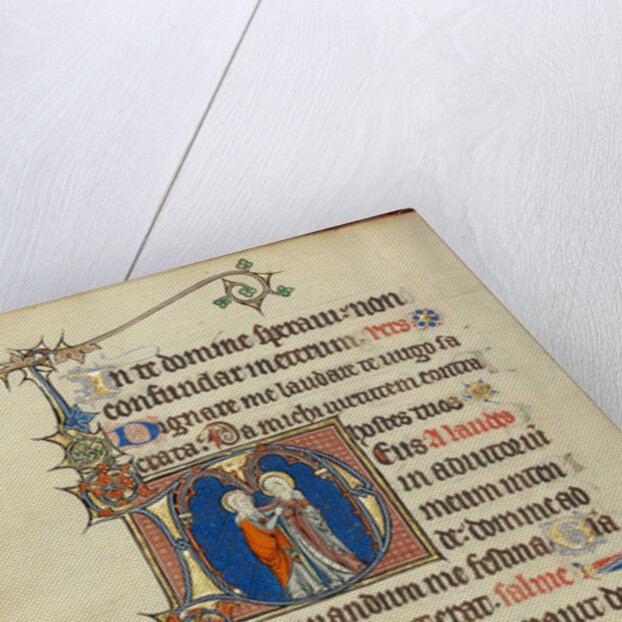 In te domine speraui: non
confundar in eternum. vers
Dignare me laudare te uirgo sa
crata. Da michi uirtutem contra
hostes tuos
Eus A laudes
in adiutoriū
meum inten
de: domine ad
iuuandum me festina. Gla
erat. salme